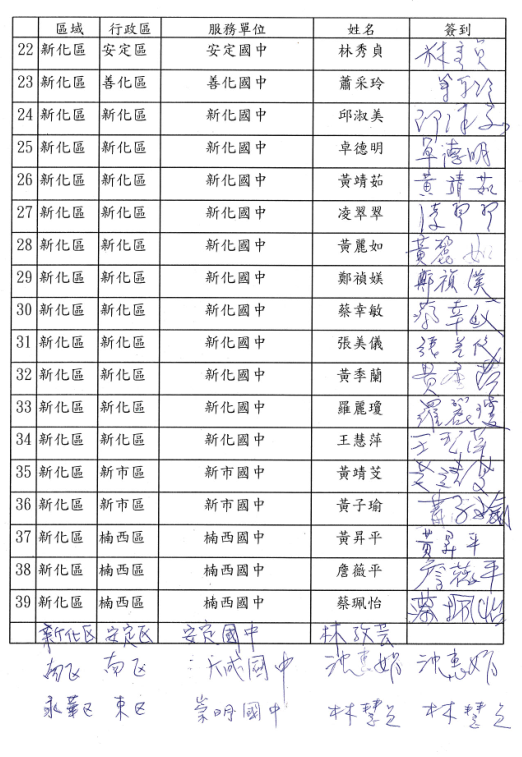 區域 行政區 服務單位 姓名 簽到
22 新化區 安定區 安定國中 林秀貞 林秀貞
23 新化區 善化區 善化國中 蕭采玲
24 新化區 新化區 新化國中 邱淑美 邱淑美
25 新化區 新化區 新化國中 卓德明 卓德明
26 新化區 新化區 新化國中 黃靖茹 黃靖茹
27 新化區 新化區 新化國中 凌翠翠
28 新化區 新化區 新化國中 黃麗如 黃麗如
29 新化區 新化區 新化國中 鄭禎媄 鄭禎媄
30 新化區 新化區 新化國中 蔡幸敏 蔡幸敏
31 新化區 新化區 新化國中 張美儀 張美儀
32 新化區 新化區 新化國中 黃季蘭 黃季蘭
33 新化區 新化區 新化國中 羅麗瓊 羅麗瓊
34 新化區 新化區 新化國中 王慧萍 王慧萍
35 新化區 新市區 新市國中 黃靖芠 黃靖芠
36 新化區 新市區 新市國中 黃子瑜 黃子瑜
37 新化區 楠西區 楠西國中 黃昇平 黃昇平
38 新化區 楠西區 楠西國中 詹薇平 詹薇平
39 新化區 楠西區 楠西國中 蔡珮怡 蔡珮怡
新化区 安定区 安定國中 林孜芸
南区 南区 大成國中 沈惠娟 沈惠娟
永華区 東区 崇明國中 林慧 林慧